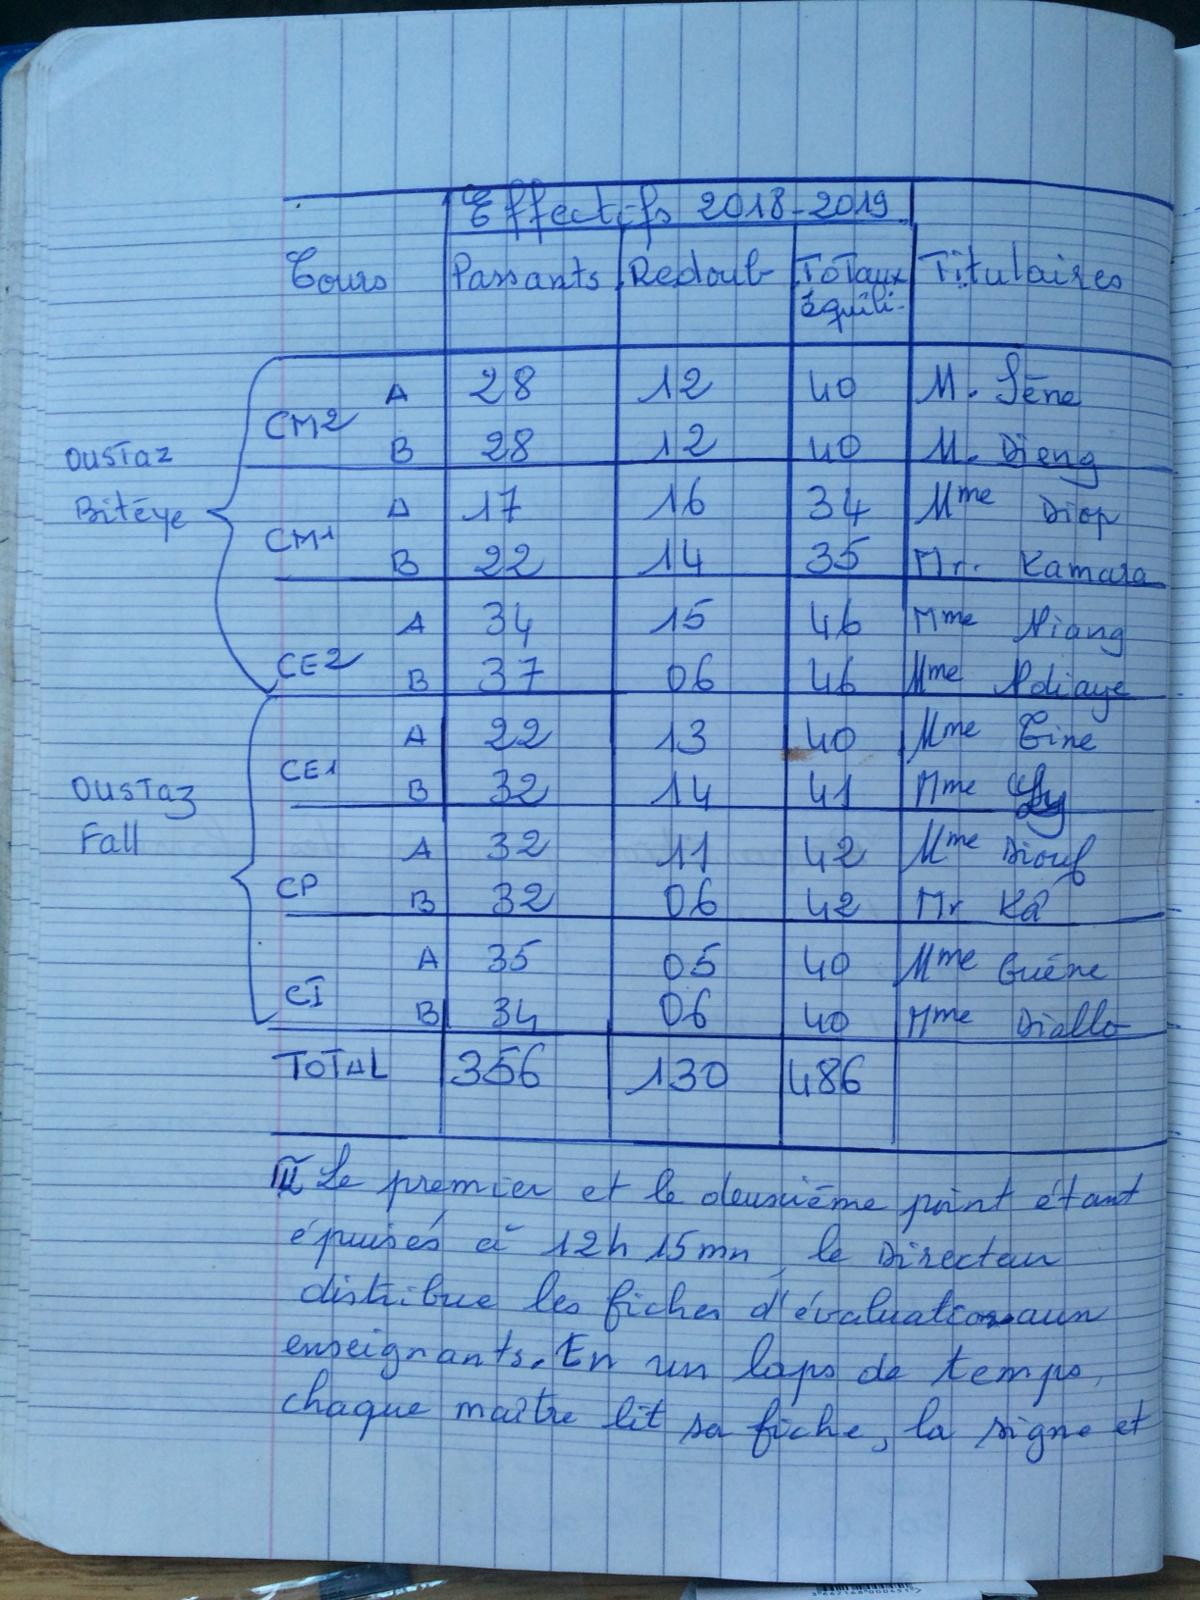 Effectifs 2018-2019
Cours Passants Redoub Totaux Équili- Titulaires
OUSTAZ Bitéye
CM2 A 28 12 40 M. Sène
B 28 12 40 M. Dieng
CM1 A 17 16 34 Mme Diop
B 22 14 35 Mr. Kamara
CE2 A 34 15 46 Mme Niang
B 37 06 46 Mme Ndiaye
OUSTAZ Fall
CE1 A 22 13 40 Mme Tine
B 32 14 41 Mme Ly
CP A 32 11 42 Mme Diouf
B 32 06 42 Mr Kâ
CI A 35 05 40 Mme Guène
B 34 06 40 Mme Diallo
TOTAL 356 130 486
III Le premier et le deuxième point étant
épuisés à 12h 15mn, le Directeur
distribue les fiches d'évaluation aux
enseignants. En un laps de temps,
chaque maître lit sa fiche, la signe et